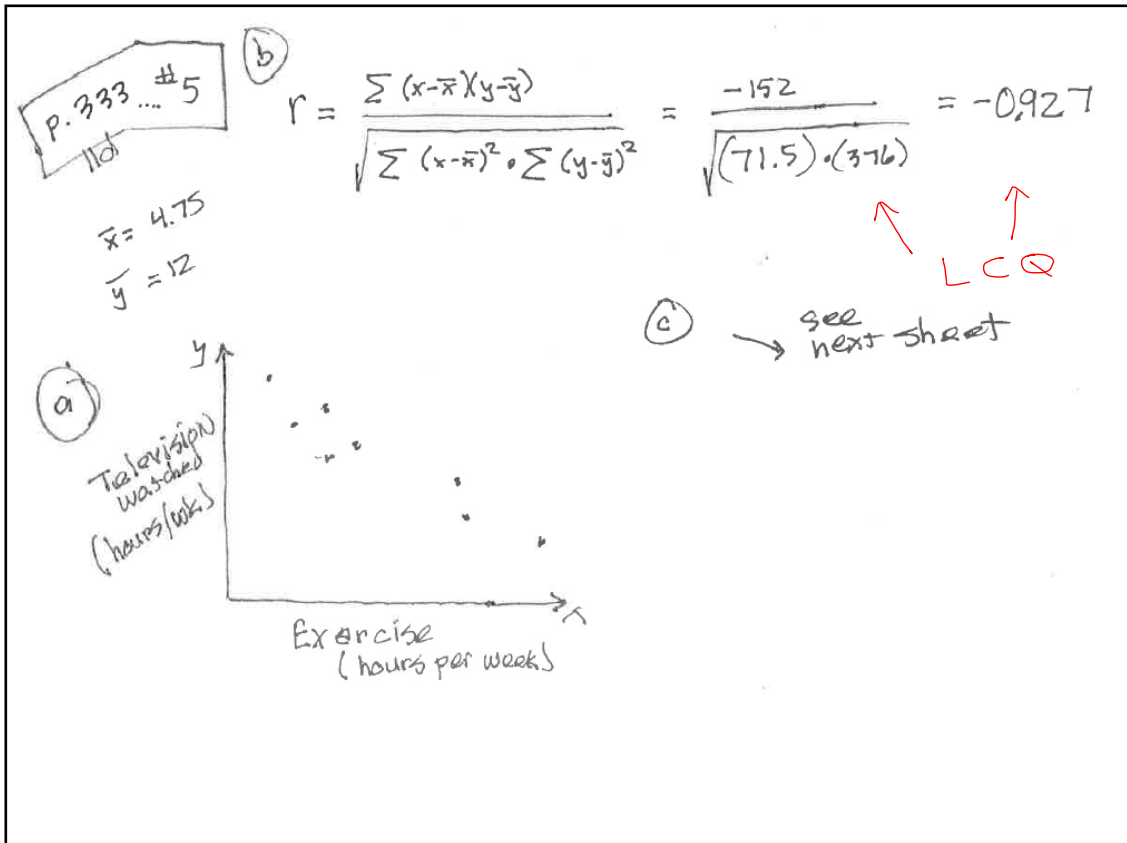 p. 333 .... #5
11d
b
r = Σ (x-x̄)(y-ȳ) / √Σ (x-x̄)² • Σ (y-ȳ)² = -152 / √(71.5)•(376) = -0.927
x̄ = 4.75
ȳ = 12
L C Q
c → see
next sheet
a
y
Television
watched
(hours/wk)
x
Exercise
(hours per week)